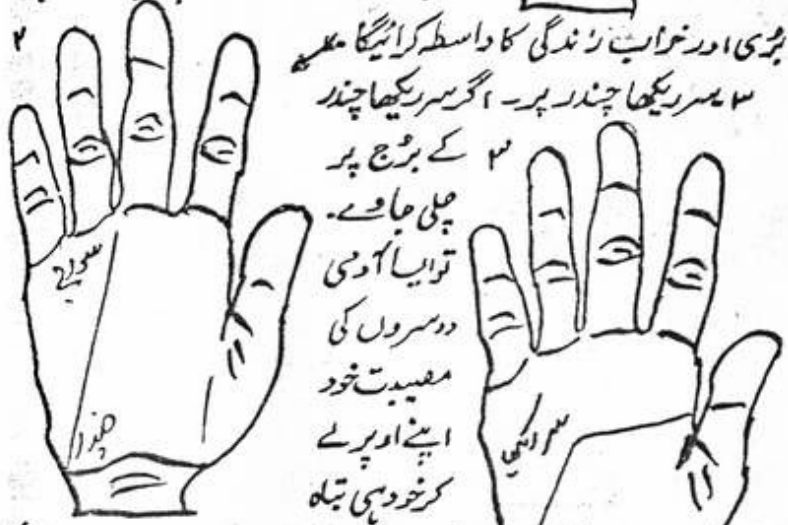 بُری اور خراب زندگی کا واسطہ کرائیگا
۳ سر ریکھا چندر پر۔ اگر سر ریکھا چندر
کے بُرج پر
چلی جاوے۔
تو ایسا آدمی
دوسروں کی
مصیبت خود
اپنے اوپر لے
کر خود ہی تباہ
۲
سورج
چندر
۳